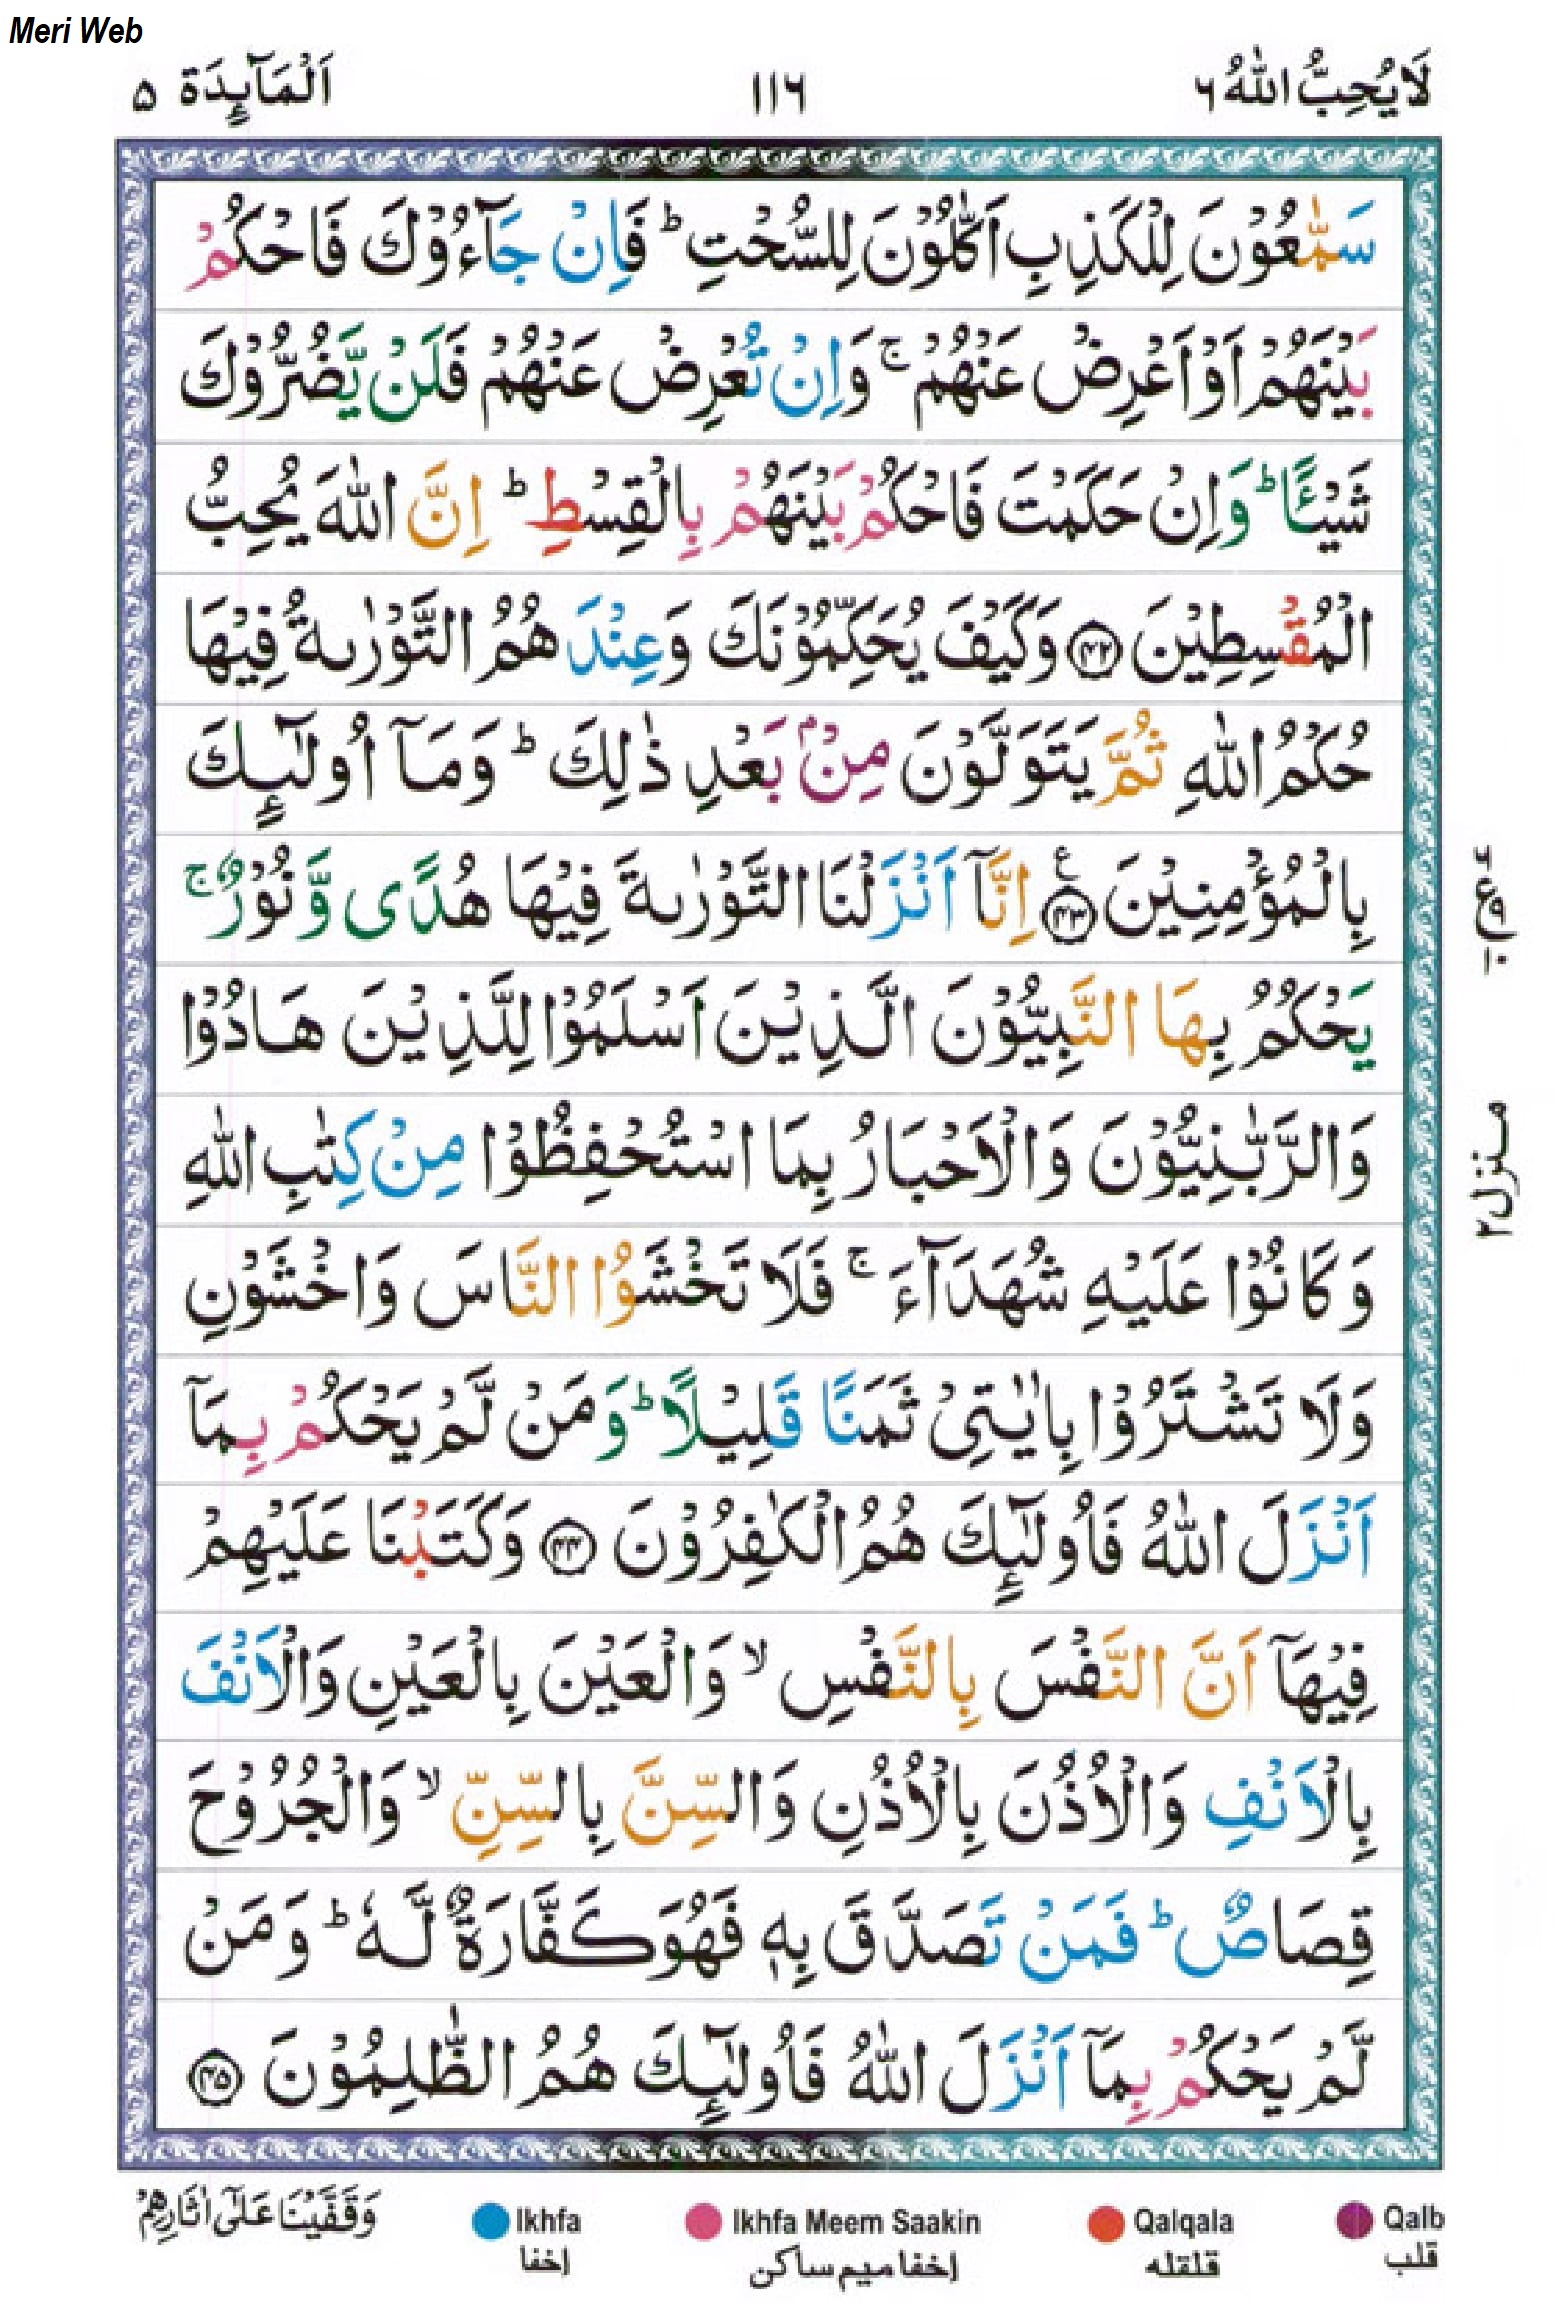 Meri Web
لَا يُحِبُّ اللّٰهُ ٦
١١٦
اَلْمَآىِٕدَة ٥
سَمّٰعُوْنَ لِلْكَذِبِ اَكّٰلُوْنَ لِلسُّحْتِ ؕ فَاِنْ جَآءُوْكَ فَاحْكُمْ
بَيْنَهُمْ اَوْ اَعْرِضْ عَنْهُمْ ۚ وَاِنْ تُعْرِضْ عَنْهُمْ فَلَنْ يَّضُرُّوْكَ
شَيْـًٔا ؕ وَاِنْ حَكَمْتَ فَاحْكُمْ بَيْنَهُمْ بِالْقِسْطِ ؕ اِنَّ اللّٰهَ يُحِبُّ
الْمُقْسِطِيْنَ ۝٤٢ وَكَيْفَ يُحَكِّمُوْنَكَ وَعِنْدَهُمُ التَّوْرٰىةُ فِيْهَا
حُكْمُ اللّٰهِ ثُمَّ يَتَوَلَّوْنَ مِنْۢ بَعْدِ ذٰلِكَ ؕ وَمَآ اُولٰٓىِٕكَ
بِالْمُؤْمِنِيْنَ ۝٤٣ ع اِنَّآ اَنْزَلْنَا التَّوْرٰىةَ فِيْهَا هُدًى وَّنُوْرٌ ۚ
يَحْكُمُ بِهَا النَّبِيُّوْنَ الَّذِيْنَ اَسْلَمُوْا لِلَّذِيْنَ هَادُوْا
وَالرَّبّٰنِيُّوْنَ وَالْاَحْبَارُ بِمَا اسْتُحْفِظُوْا مِنْ كِتٰبِ اللّٰهِ
وَكَانُوْا عَلَيْهِ شُهَدَآءَ ۚ فَلَا تَخْشَوُا النَّاسَ وَاخْشَوْنِ
وَلَا تَشْتَرُوْا بِاٰيٰتِيْ ثَمَنًا قَلِيْلًا ؕ وَمَنْ لَّمْ يَحْكُمْ بِمَآ
اَنْزَلَ اللّٰهُ فَاُولٰٓىِٕكَ هُمُ الْكٰفِرُوْنَ ۝٤٤ وَكَتَبْنَا عَلَيْهِمْ
فِيْهَآ اَنَّ النَّفْسَ بِالنَّفْسِ ۙ وَالْعَيْنَ بِالْعَيْنِ وَالْاَنْفَ
بِالْاَنْفِ وَالْاُذُنَ بِالْاُذُنِ وَالسِّنَّ بِالسِّنِّ ۙ وَالْجُرُوْحَ
قِصَاصٌ ؕ فَمَنْ تَصَدَّقَ بِهٖ فَهُوَ كَفَّارَةٌ لَّهٗ ؕ وَمَنْ
لَّمْ يَحْكُمْ بِمَآ اَنْزَلَ اللّٰهُ فَاُولٰٓىِٕكَ هُمُ الظّٰلِمُوْنَ ۝٤٥
منزل ٢
Qalb
قلب
Qalqala
قلقله
Ikhfa Meem Saakin
اخفا ميم ساكن
Ikhfa
اخفا
وَقَفَّيْنَا عَلٰٓى اٰثَارِهِمْ